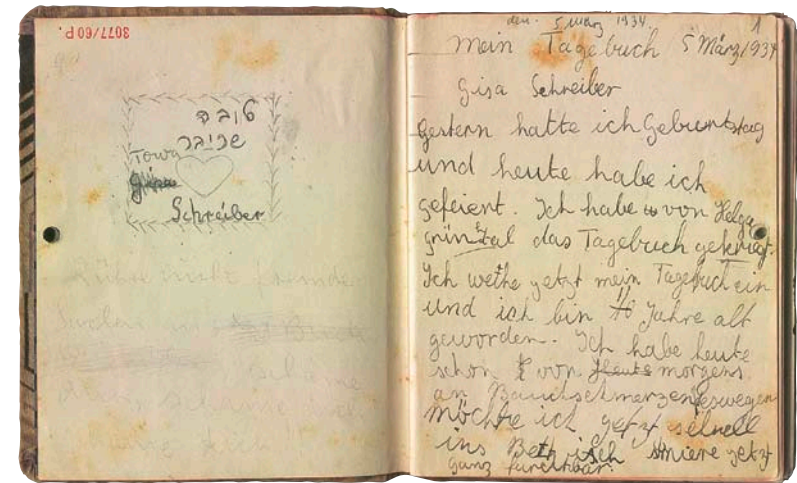 3077/60 P.
טובה
שרייבר
Towa
Schreiber
Rühre nicht fremde
den. 5 März 1934. 1
mein Tagebuch 5 März 1934
Gisa Schreiber
Gestern hatte ich Geburtstag
und heute habe ich
gefeiert. Ich habe von Helga
grünstal das Tagebuch gekriegt.
Ich weihe jetzt mein Tagebuch ein
und ich bin 10 Jahre alt
geworden. Ich habe heute
schon von heute morgens
an Bauchschmerzen deswegen
möchte ich jetzt schnell
ins Bett ich schmiere jetzt
ganz furchtbar.